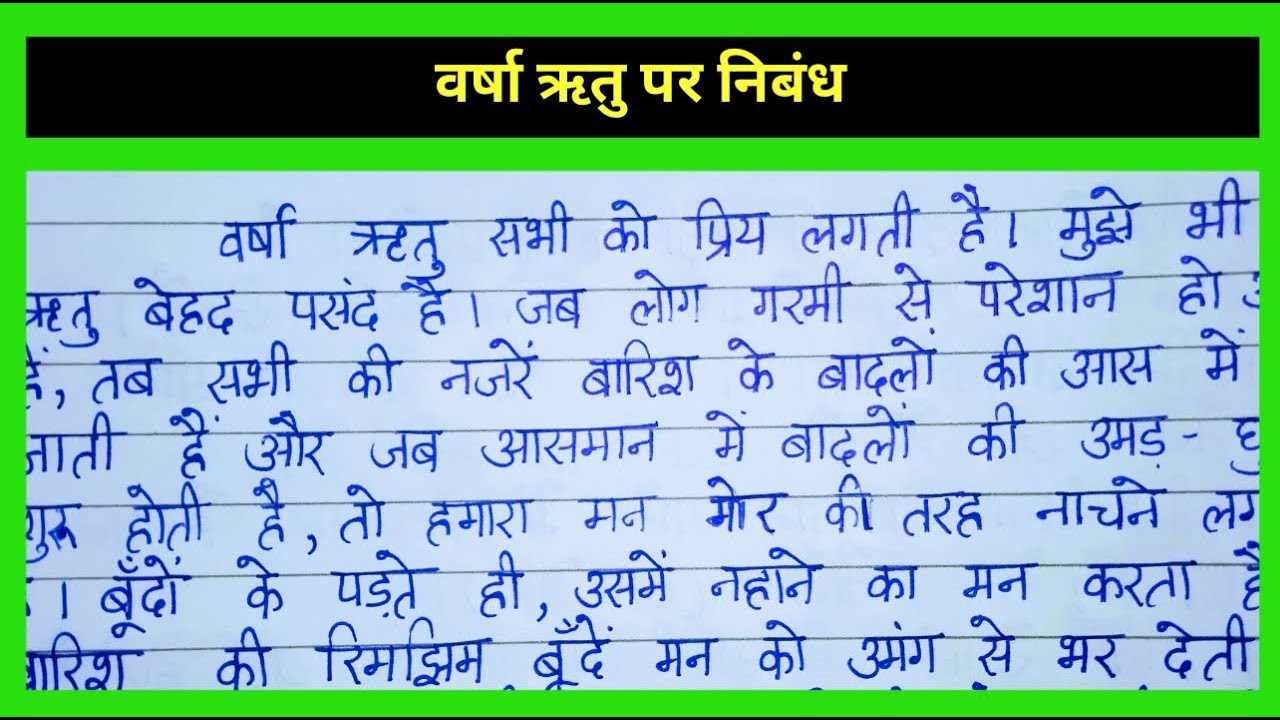 वर्षा ऋतु पर निबंध
वर्षा ऋतु सभी को प्रिय लगती है। मुझे भी
ऋतु बेहद पसंद है। जब लोग गरमी से परेशान हो
हैं, तब सभी की नजरें बारिश के बादलों की आस में
जाती हैं और जब आसमान में बादलों की उमड़ -
शुरू होती है, तो हमारा मन मोर की तरह नाचने लग
। बूँदों के पड़ते ही, उसमें नहाने का मन करता है
बारिश की रिमझिम बूँदें मन को उमंग से भर देती